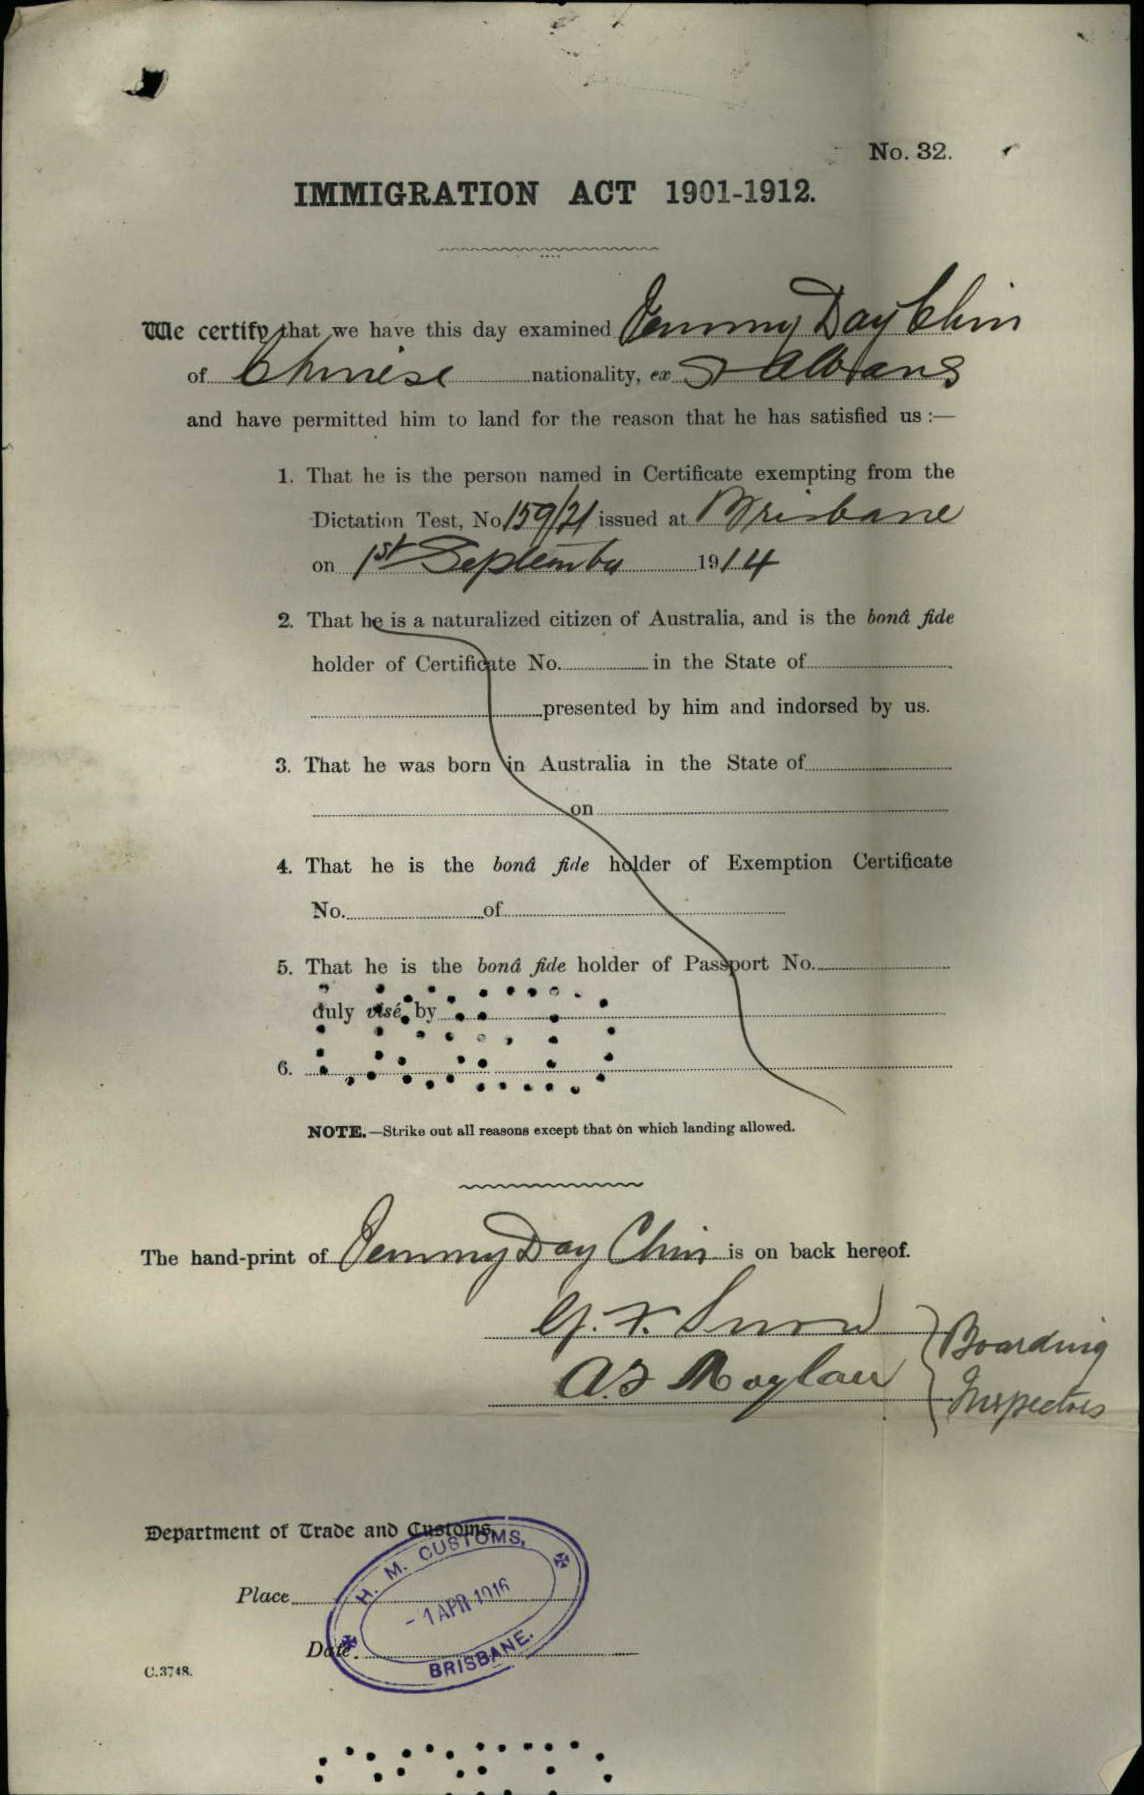 No. 32.
IMMIGRATION ACT 1901-1912.
We certify that we have this day examined Jemmy Day Chin
of Chinese nationality, ex St Albans
and have permitted him to land for the reason that he has satisfied us :—
1. That he is the person named in Certificate exempting from the
Dictation Test, No. 159/21 issued at Brisbane
on 1st September 1914
2. That he is a naturalized citizen of Australia, and is the bonâ fide
holder of Certificate No. in the State of
presented by him and indorsed by us.
3. That he was born in Australia in the State of
on
4. That he is the bonâ fide holder of Exemption Certificate
No. of
5. That he is the bonâ fide holder of Passport No.
duly visé by
6.
NOTE.—Strike out all reasons except that on which landing allowed.
The hand-print of Jemmy Day Chin is on back hereof.
Snow
Boarding
A.
Inspectors
Department of Trade and Customs,
H. M. CUSTOMS,
Place
- 1 APR 1916
Date.
BRISBANE.
C.3748.